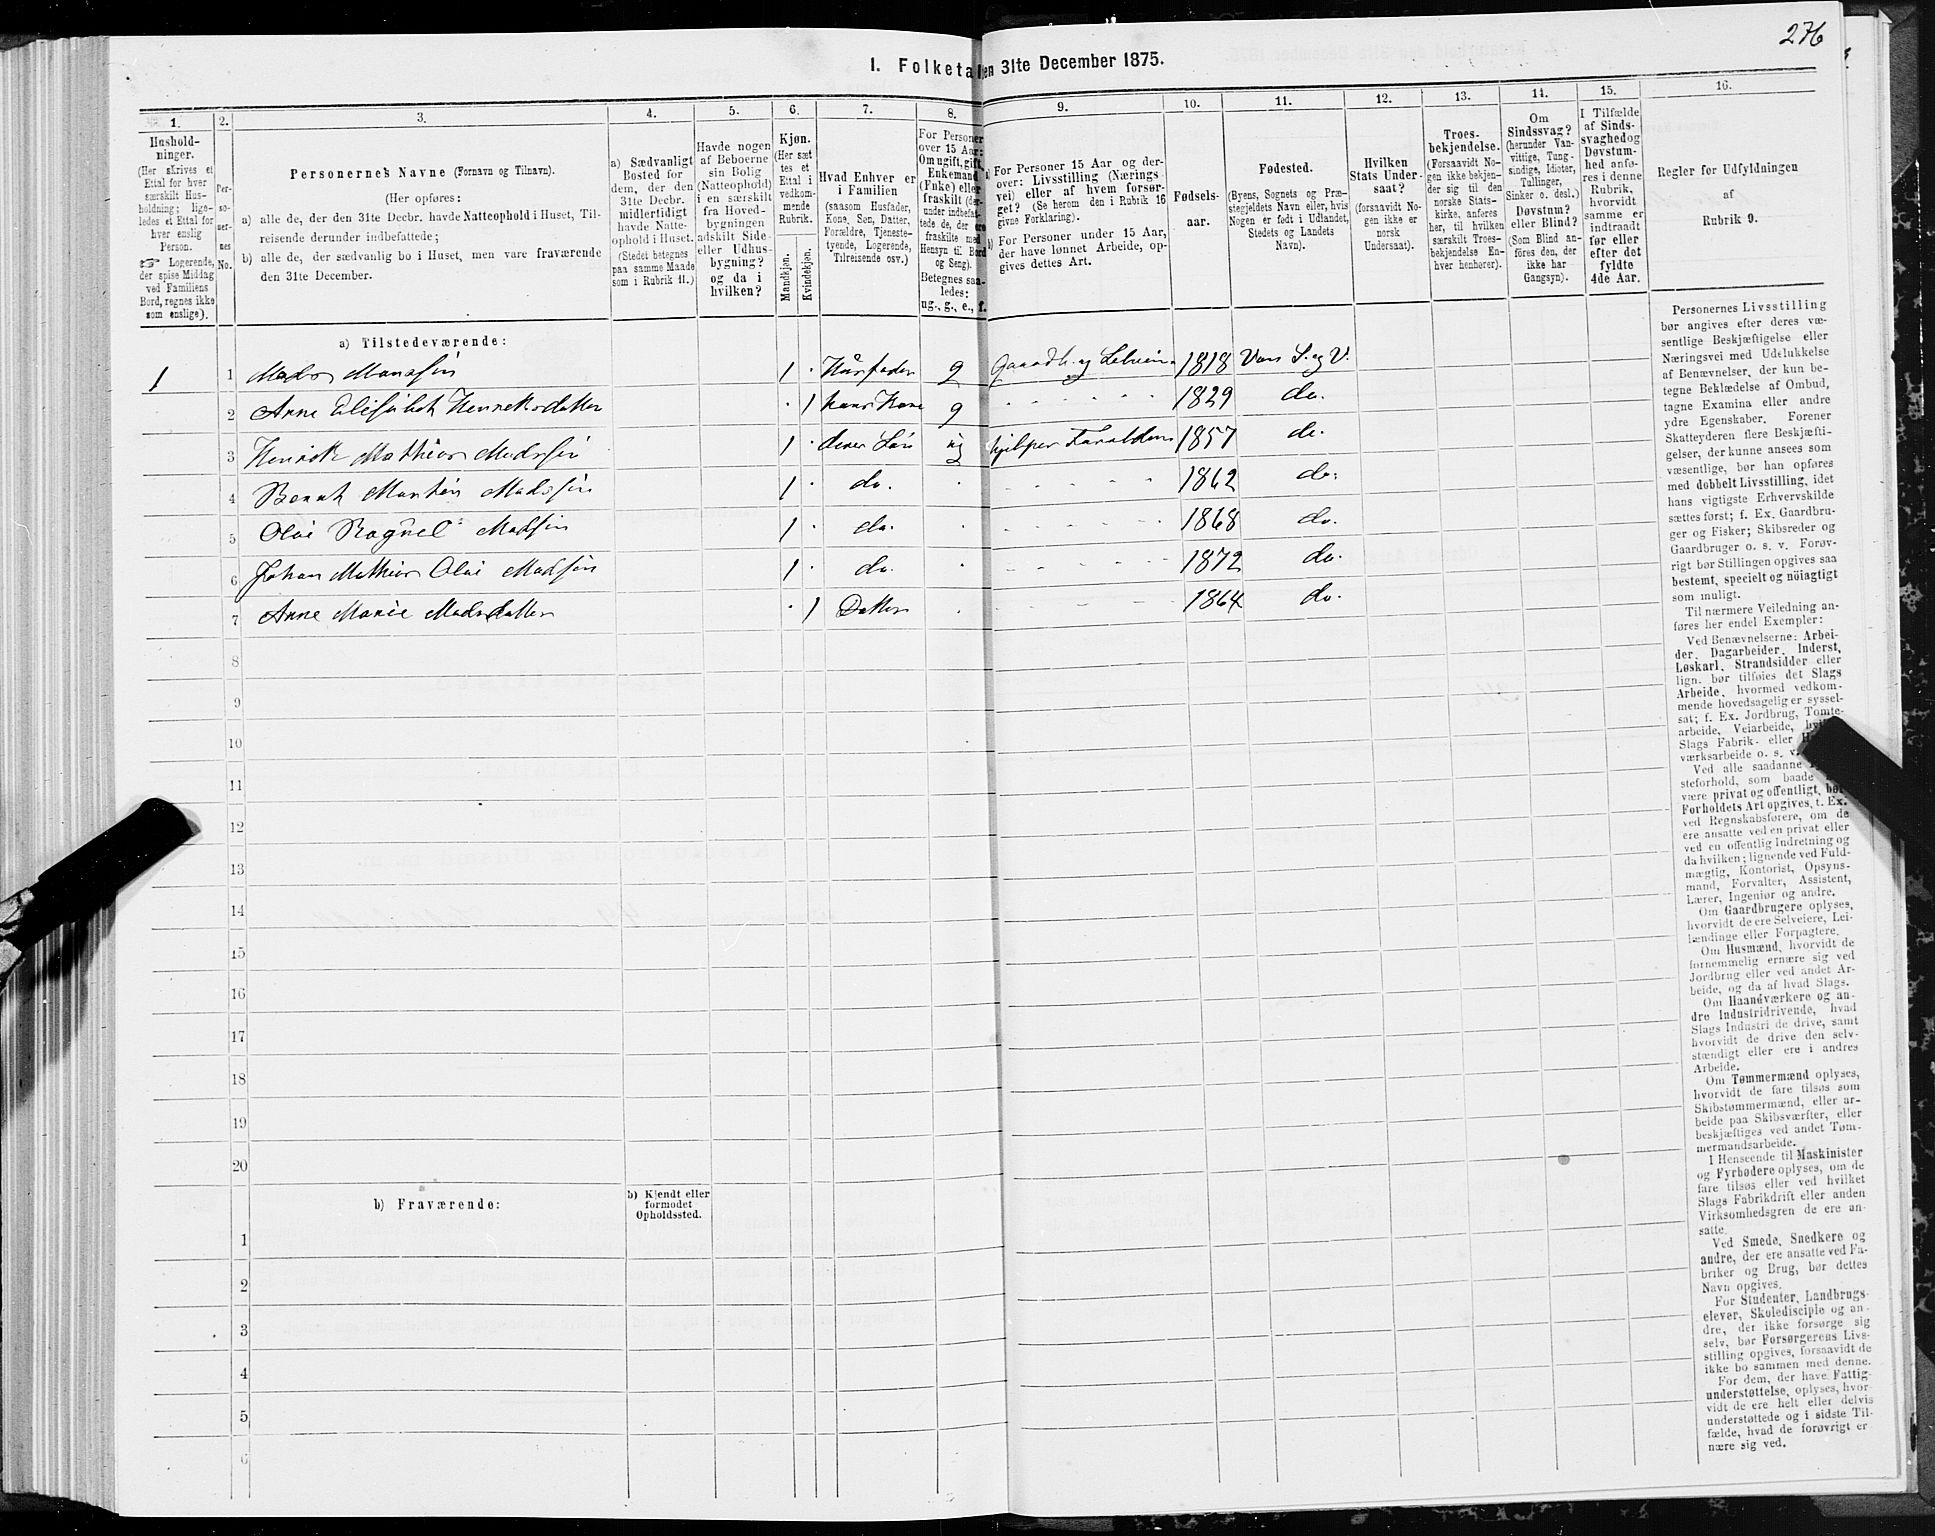 276
I. Folketa en 31te December 1875.
1. 2. 3. 4. 5. 6. 7. 8. 9. 10. 11. 12. 13. 14. 15. 16.
Hushold-
ninger.
(Her skrives et
Ettal for hver
særskilt Hus-
holdning; lige-
ledes et Ettal for
hver enslig
Person.
☞ Logerende,
der spise Middag
ved Familiens
Bord, regnes ikke
som enslige).
Per-
so-
ner-
nes
No.
Personernes Navne (Fornavn og Tilnavn).
(Her opføres:
a) alle de, der den 31te Decbr. havde Natteophold i Huset, Til-
reisende derunder indbefattede;
b) alle de, der sædvanlig bo i Huset, men vare fraværende
den 31te December.
a) Sædvanligt
Bosted for
dem, der den
31te Decbr.
midlertidigt
havde Natte-
ophold i Huset.
(Stedet betegnes
paa samme Maade
som i Rubrik 11.)
Havde nogen
af Beboerne
sin Bolig
(Natteophold)
i en særskilt
fra Hoved-
bygningen
adskilt Side-
eller Udhus-
bygning?
og da i
hvilken?
Kjøn.
(Her sæt-
tes et
Ettal i
vedkom-
mende
Rubrik.
Mandkjøn.
Kvindekjøn.
Hvad Enhver er
i Familien
(saasom Husfader,
Kone, Søn, Datter,
Forældre, Tjeneste-
tyende, Logerende,
Tilreisende osv.)
For Personer
over 15 Aar:
Om ugift, gift,
Enkemand
(Enke) eller
fraskilt (der-
under indbefat-
tede de, der ere
fraskilte med
Hensyn til Bord
og Seng).
Betegnes saa-
ledes:
ug., g., e., f.
a) For Personer 15 Aar og der-
over: Livsstilling (Nærings-
vei) eller af hvem forsør-
get? (Se herom den i Rubrik 16
givne Forklaring).
b) For Personer under 15 Aar,
der have lønnet Arbeide, op-
gives dettes Art.
Fødsels-
aar.
Fødested.
(Byens, Sognets og Præ-
stegjeldets Navn eller, hvis
Nogen er født i Udlandet,
Stedets og Landets
Navn).
Hvilken
Stats Under-
saat?
(forsaavidt No-
gen ikke er
norsk
Undersaat).
Troes-
bekjendelse.
(Forsaavidt No-
gen ikke bekjen-
der sig til den
norske Stats-
kirke, anføres
her, til hvilken
særskilt Troes-
bekjendelse En-
hver henhører).
Om
Sindssvag?
(herunder Van-
vittige, Tung-
sindige, Idioter,
Tullinger,
Sinker o. desl.)
Døvstum?
eller Blind?
(Som Blind an-
føres den, der
ikke har
Gangsyn).
I Tilfælde
af Sinds-
svaghed og
Døvstum-
hed anfø-
res i denne
Rubrik,
hvorvidt
samme er
indtraadt
før eller
efter det
fyldte
4de Aar.
Regler for Udfyldningen
af
Rubrik 9.
a) Tilstedeværende:
1 1 Mads Monssøn 1 · Husfader g Gaardb. og Selveier 1818 Vors S. og V.
2 Anne Elisabet Henriksdatter · 1 hans Kone g 1829 do.
3 Henrik Mathias Madssøn 1 · deres Søn ug hjelper Forældrene 1857 do.
4 Bernt Martin Madssøn 1 · do. 1862 do.
5 Olai Ragnel Madssøn 1 · do. 1868 do.
6 Johan Mathias Olai Madssøn 1 · do. 1872 do.
7 Anne Marie Madsdatter · 1 Datter 1864 do.
8
9
10
11
12
13
14
15
16
17
18
19
20
b) Fraværende:
b) Kjendt eller
formodet
Opholdssted.
1
2
3
4
5
6
Personernes Livsstilling
bør angives efter deres væ-
sentlige Beskjæftigelse eller
Næringsvei med Udelukkelse
af Benævnelser, der kun be-
tegne Beklædelse af Ombud,
tagne Examina eller andre
ydre Egenskaber. Forener
Skatteyderen flere Beskjæfti-
gelser, der kunne ansees som
væsentlige, bør han opføres
med dobbelt Livsstilling, idet
hans vigtigste Erhvervskilde
sættes først; f. Ex. Gaardbru-
ger og Fisker; Skibsreder og
Gaardbruger o. s. v. Forøv-
rigt bør Stillingen opgives saa
bestemt, specielt og nöiagtigt
som muligt.
Til nærmere Veiledning an-
føres her endel Exempler:
Ved Benævnelserne: Arbei-
der, Dagarbeider, Inderst,
Løskarl, Strandsidder eller
lign. bør tilføies det Slags
Arbeide, hvormed vedkom-
mende hovedsagelig er syssel-
sat; f. Ex. Jordbrug, Tomte-
arbeide, Veiarbeide,
Slags Fabrik- eller
værksarbeide o. s. v.
Ved alle saadanne
steforhold, som baade
være privat og offentligt, bør
Forholdets Art opgives, t. Ex.
ved Regnskabsførere, om de
ere ansatte ved en privat eller
ved en offentlig Indretning og
da hvilken; lignende ved Fuld-
mægtig, Kontorist, Opsyns-
mand, Forvalter, Assistent,
Lærer, Ingeniør og andre.
Om Gaardbrugere oplyses,
hvorvidt de ere Selveiere, Lei-
lændinge eller Forpagtere.
Om Husmænd, hvorvidt de
fornemmelig ernære sig ved
Jordbrug eller ved andet Ar-
beide, og da af hvad Slags.
Om Haandværkere og an-
dre Industridrivende, hvad
Slags Industri de drive, samt
hvorvidt de drive den selv-
stændigt eller ere i andres
Arbeide.
Om Tømmermænd oplyses,
hvorvidt de fare tilsøs som
Skibstømmermænd, eller ar-
beide paa Skibsværfter, eller
beskjæftiges ved andet Tøm-
mermandsarbeide.
I Henseende til Maskinister
og Fyrbødere oplyses, om de
fare tilsøs eller ved hvilket
Slags Fabrikdrift eller anden
Virksomhedsgren de ere an-
satte.
Ved Smede, Snedkere og
andre, der ere ansatte ved Fa-
briker og Brug, bør dettes
Navn opgives.
For Studenter, Landbrugs-
elever, Skoledisciple og an-
dre, der ikke forsørge sig
selv, bør Forsørgerens Livs-
stilling opgives, forsaavidt de
ikke bo sammen med denne.
For dem, der have Fattig-
understøttelse, oplyses, hvor-
vidt de ere helt eller delvis
understøttede og i sidste Til-
fælde, hvad de forøvrigt er-
nære sig ved.